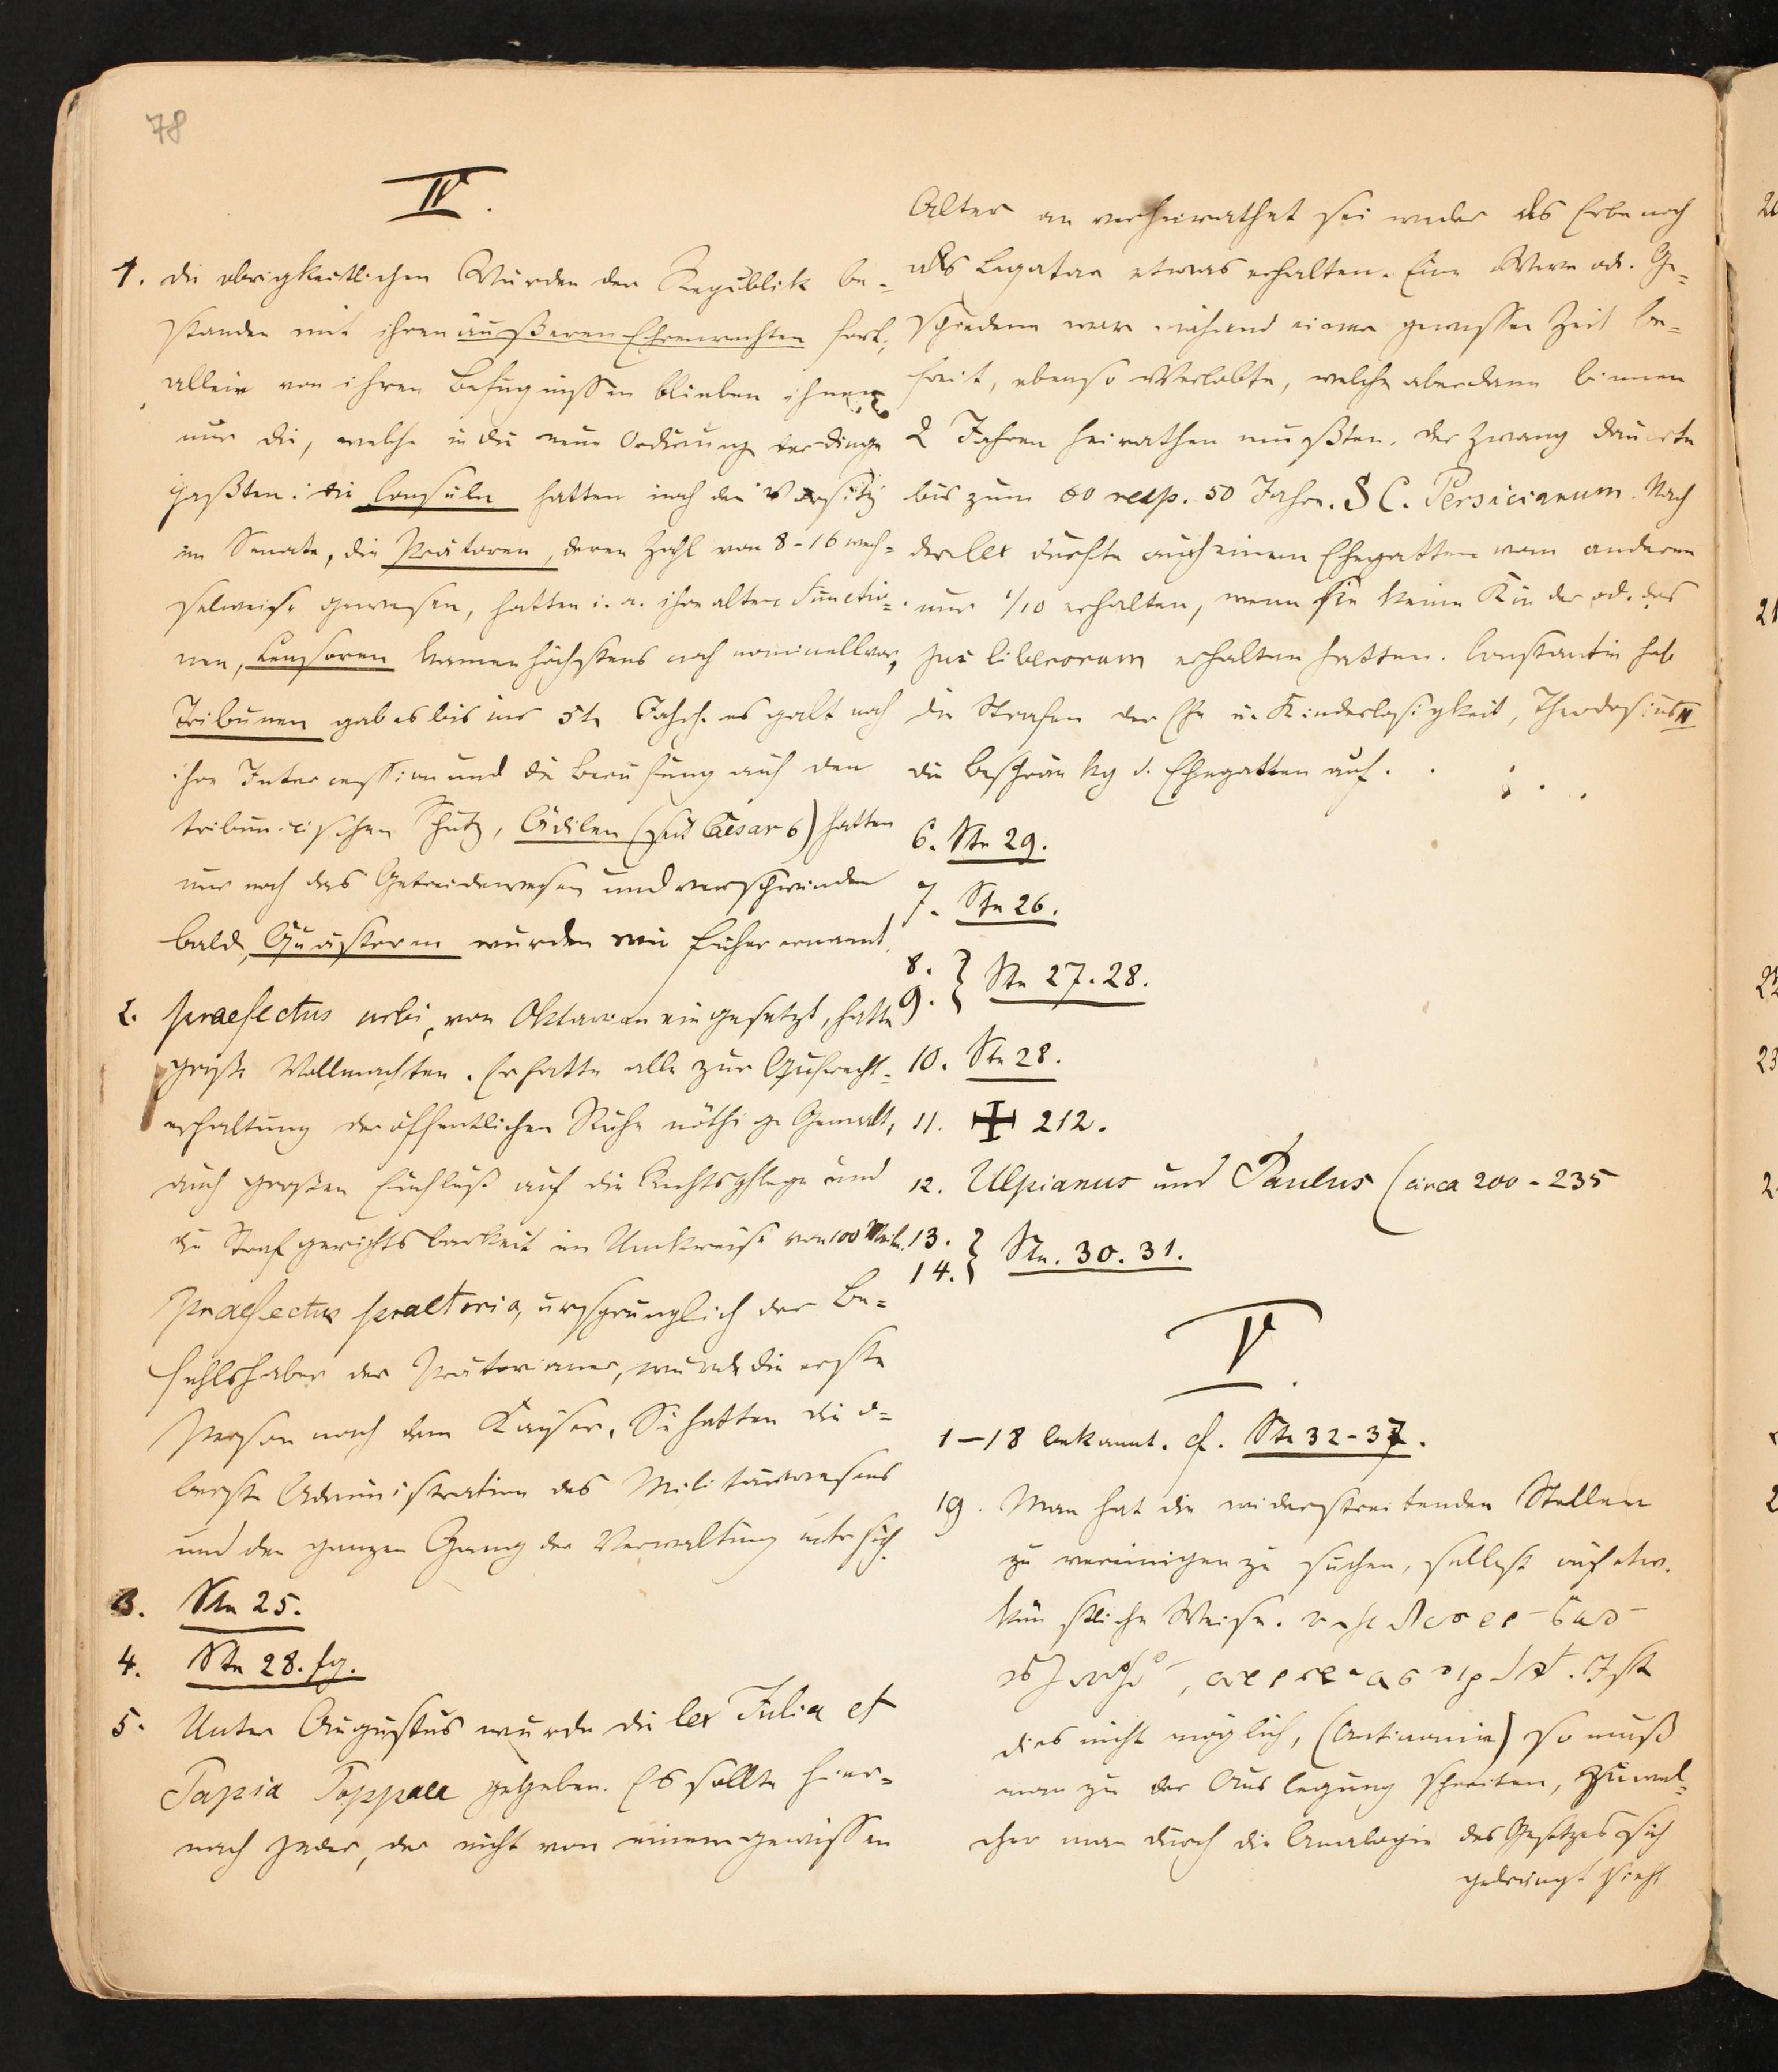 78
IV.
1. die obrigkeitlichen Würden der Republik be-
standen mit ihren äußeren Ehrenrechten fort,
allein von ihren Befugnissen blieben ihnen
nur die, welche in die neue Ordnung der Dinge
paßten: die Consuln hatten noch den Vorsitz
im Senate, die Prätoren, deren Zahl von 8-16 wech-
selweise gewesen, hatten i. a. ihre alten Functio-
nen, Censoren kamen höchstens noch nominell vor,
Tribunen gab es bis ins 5te Jahrh. es galt noch
ihre Intercession und die Berufung auf den
tribunicischen Schutz, Ädilen (seit Caesar 6) hatten
nur noch das Getreidewesen und verschwinden
bald, Quästoren wurden wie früher ernannt.
2. praefectus urbi, von Oktavian eingesetzt, hatte
große Vollmachten. Er hatte alle zur Aufrecht-
erhaltung der öffentlichen Ruhe nöthige Gewalt,
auch großen Einfluß auf die Rechtspflege und
die Strafgerichtsbarkeit im Umkreise von 100 Meil.
Praefectus praetorio, ursprünglich der Be-
fehlshaber der Prätorianer, wurde die erste
Person nach dem Kaiser. Sie hatten die o-
berste Administration des Militärwesens
und den ganzen Gang der Verwaltung unter sich.
3. Ste 25.
4. Ste 28. fg.
5. Unter Augustus wurde die lex Julia et
Papia Poppaea gegeben. Es sollte hier-
nach jeder, der nicht von einem gewissen
Alter an verheirathet sei weder als Erbe noch
als Legatar etwas erhalten. Eine Witwe od. Ge-
schiedene war während einer gewissen Zeit be-
freit, ebenso Verlobte, welche aber dann binnen
2 Jahren heirathen mußten. Der Zwang dauerte
bis zum 60 resp. 50 Jahre. S C. Persicianum. Nach
der lex durfte auch einem Ehegatten vom anderen
nur 1/10 erhalten, wenn sie keine Kinder od. das
jus liberorum erhalten hatten. Constantin hob
die Strafen der Ehe u. Kinderlosigkeit, Theodosius II
die Beschränkg d. Ehegatten auf.
6. Ste 29.
7. Ste 26.
8.
9. } Ste 27. 28.
10. Ste 28.
11. ✠ 212.
12. Ulpianus und Paulus (circa 200 - 235
13.
14. } Ste. 30. 31.
V.
1-18 bekannt. cf. Ste 32-37.
19. Man hat die widerstreitenden Stellen
zu vereinigen zu suchen, selbst auf etw.
künstliche Weise.
Ist
dies nicht möglich, (Antinomie) so muß
man zu der Auslegung schreiten, zu wel-
cher man durch die Analogie des Gesetzes sich
gedrängt sieht